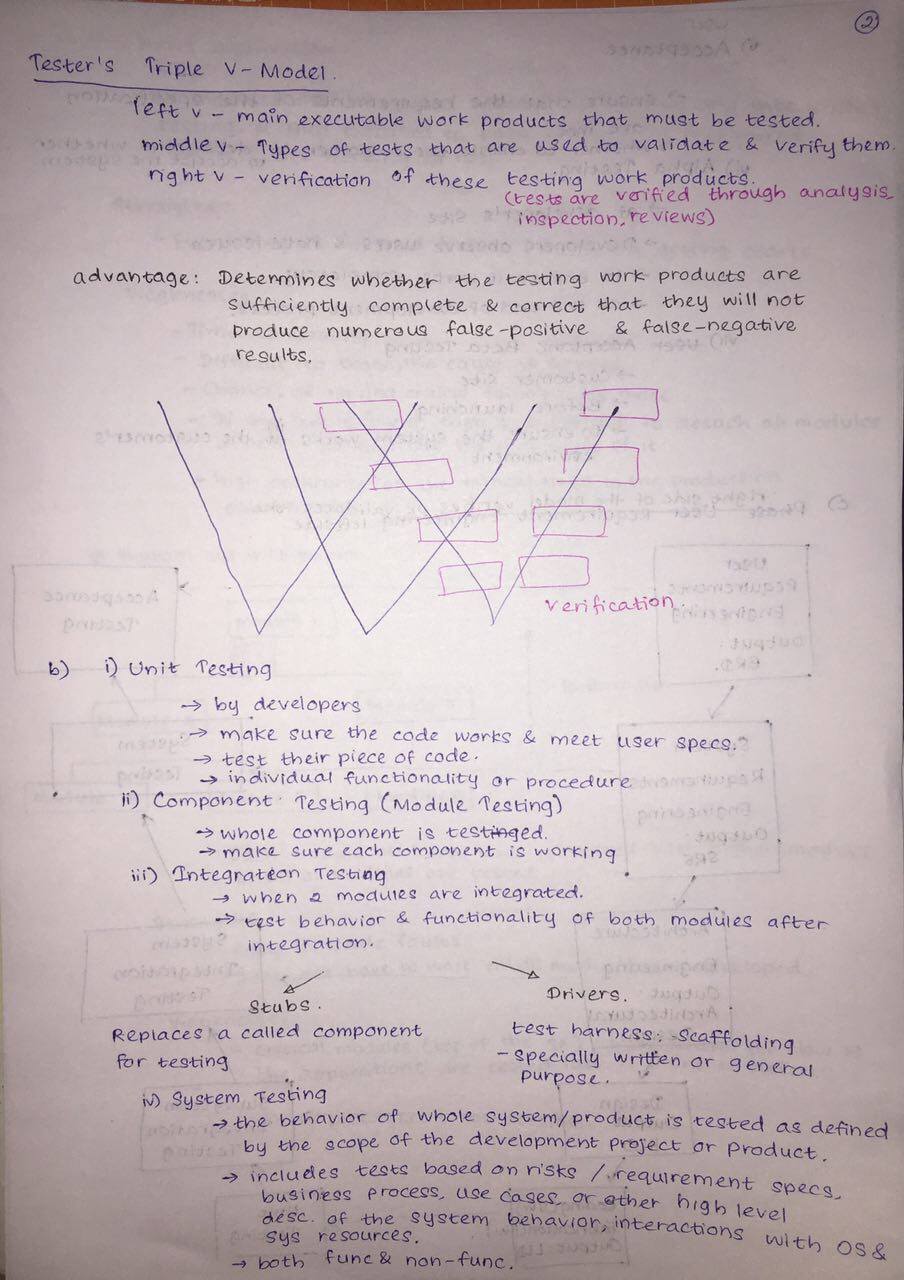 2
Tester's Triple V-Model.
left v - main executable work products that must be tested.
middle v - Types of tests that are used to validate & verify them.
right v - verification of these testing work products.
(tests are verified through analysis,
inspection, reviews)
advantage: Determines whether the testing work products are
sufficiently complete & correct that they will not
produce numerous false-positive & false-negative
results.
verification.
b) i) Unit Testing
→ by developers
→ make sure the code works & meet user specs.
→ test their piece of code.
→ individual functionality or procedure
ii) Component Testing (Module Testing)
→ whole component is tested.
→ make sure each component is working
iii) Integration Testing
→ when 2 modules are integrated.
→ test behavior & functionality of both modules after
integration.
Stubs.
Replaces a called component
for testing
Drivers.
test harness: Scaffolding
- specially written or general
purpose.
iv) System Testing
→ the behavior of whole system/product is tested as defined
by the scope of the development project or product.
→ includes tests based on risks / requirement specs,
business process, use cases, or other high level
desc. of the system behavior, interactions with OS &
sys resources.
→ both func & non-func.